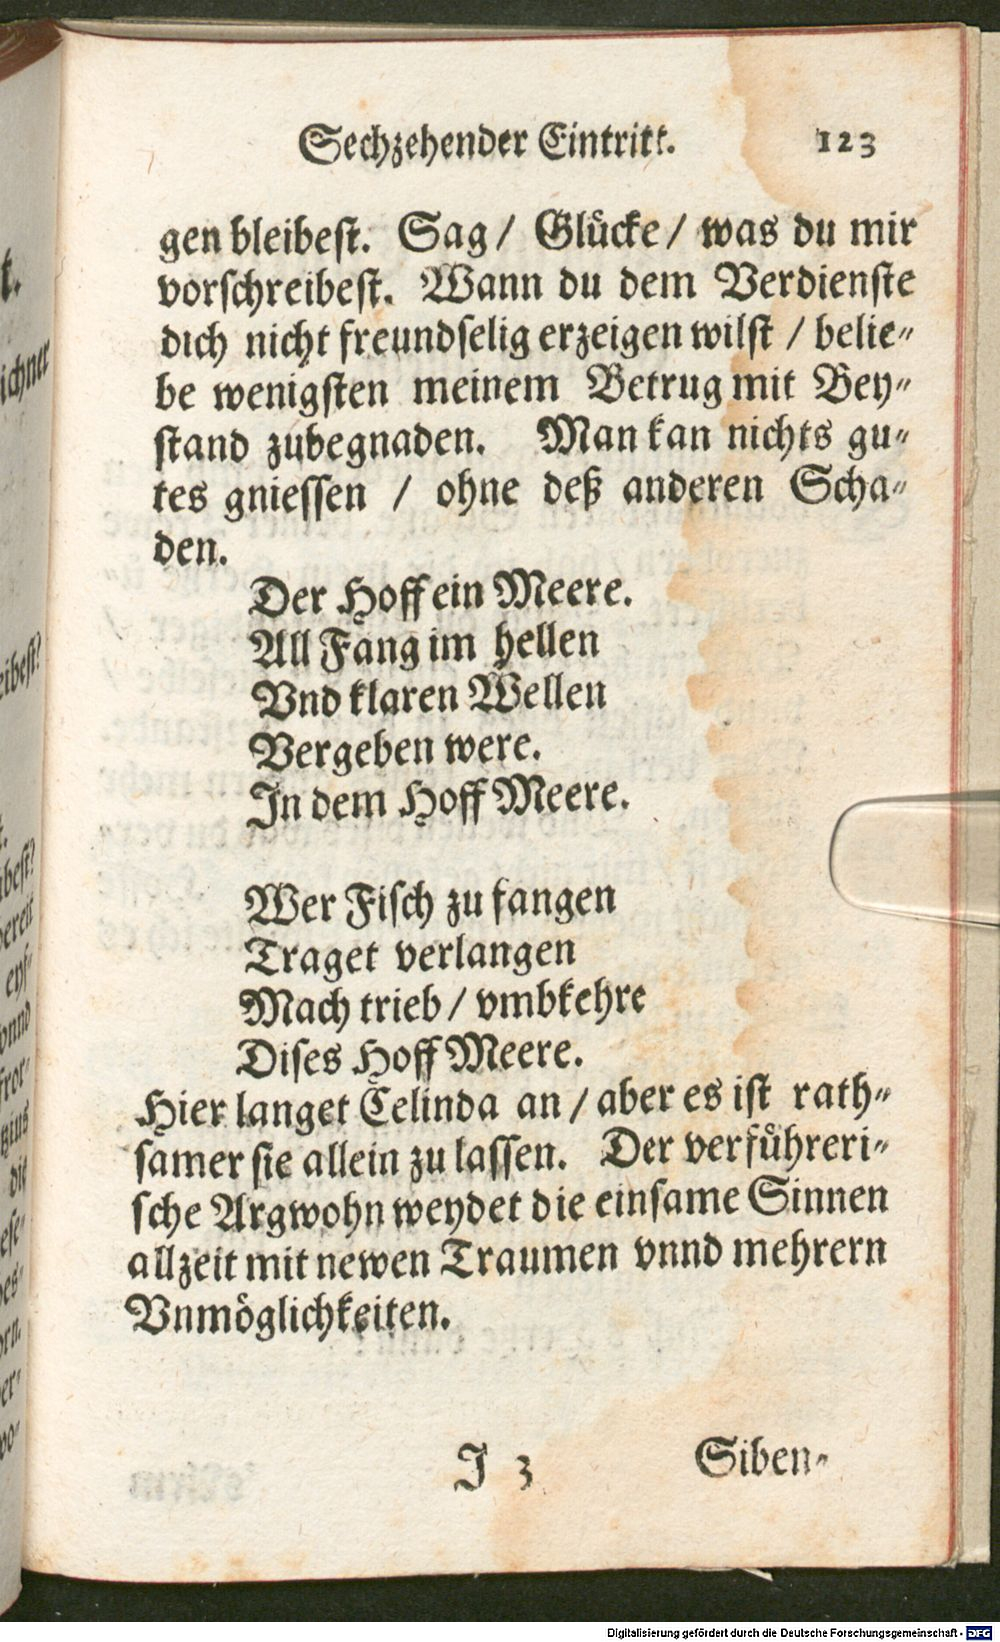 Sechzehender Eintritt. 123
gen bleibest. Sag/ Glücke/ was du mir
vorschreibest. Wann du dem Verdienste
dich nicht freundselig erzeigen wilst / belie-
be wenigsten meinem Betrug mit Bey-
stand zubegnaden. Man kan nichts gu-
tes gniessen / ohne deß anderen Scha-
den.
Der Hoff ein Meere.
All Fang im hellen
Vnd klaren Wellen
Vergeben were.
In dem Hoff Meere.
Wer Fisch zu fangen
Traget verlangen
Mach trieb / vmbkehre
Dises Hoff Meere.
Hier langet Celinda an / aber es ist rath-
samer sie allein zu lassen. Der verführeri-
sche Argwohn weydet die einsame Sinnen
allzeit mit newen Traumen vnnd mehrern
Vnmöglichkeiten.
J 3 Siben-
Digitalisierung gefördert durch die Deutsche Forschungsgemeinschaft - DFG